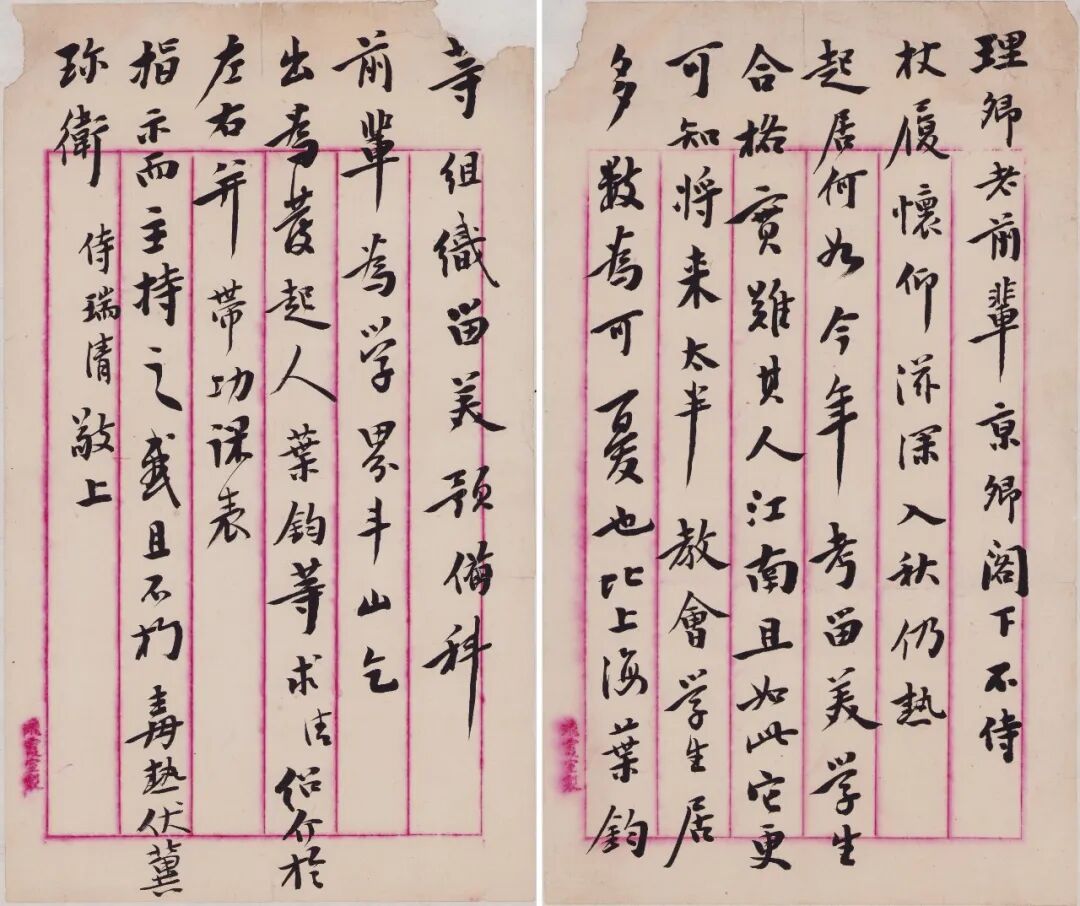 理卿老前輩京卿閣下不侍
杖履懷仰滋深入秋仍熱
起居何如今年考留美學生
合格實難其人江南且如此它更
可知將來太半教會學生居
多數為可憂也比上海葉鈞
等組織留美預備科
前輩為學界斗山乞
出為發起人葉鈞等求清紹介於
左右并帶功課表
指示而主持之感且不朽毒熱伏冀
珍衛 侍瑞清敬上